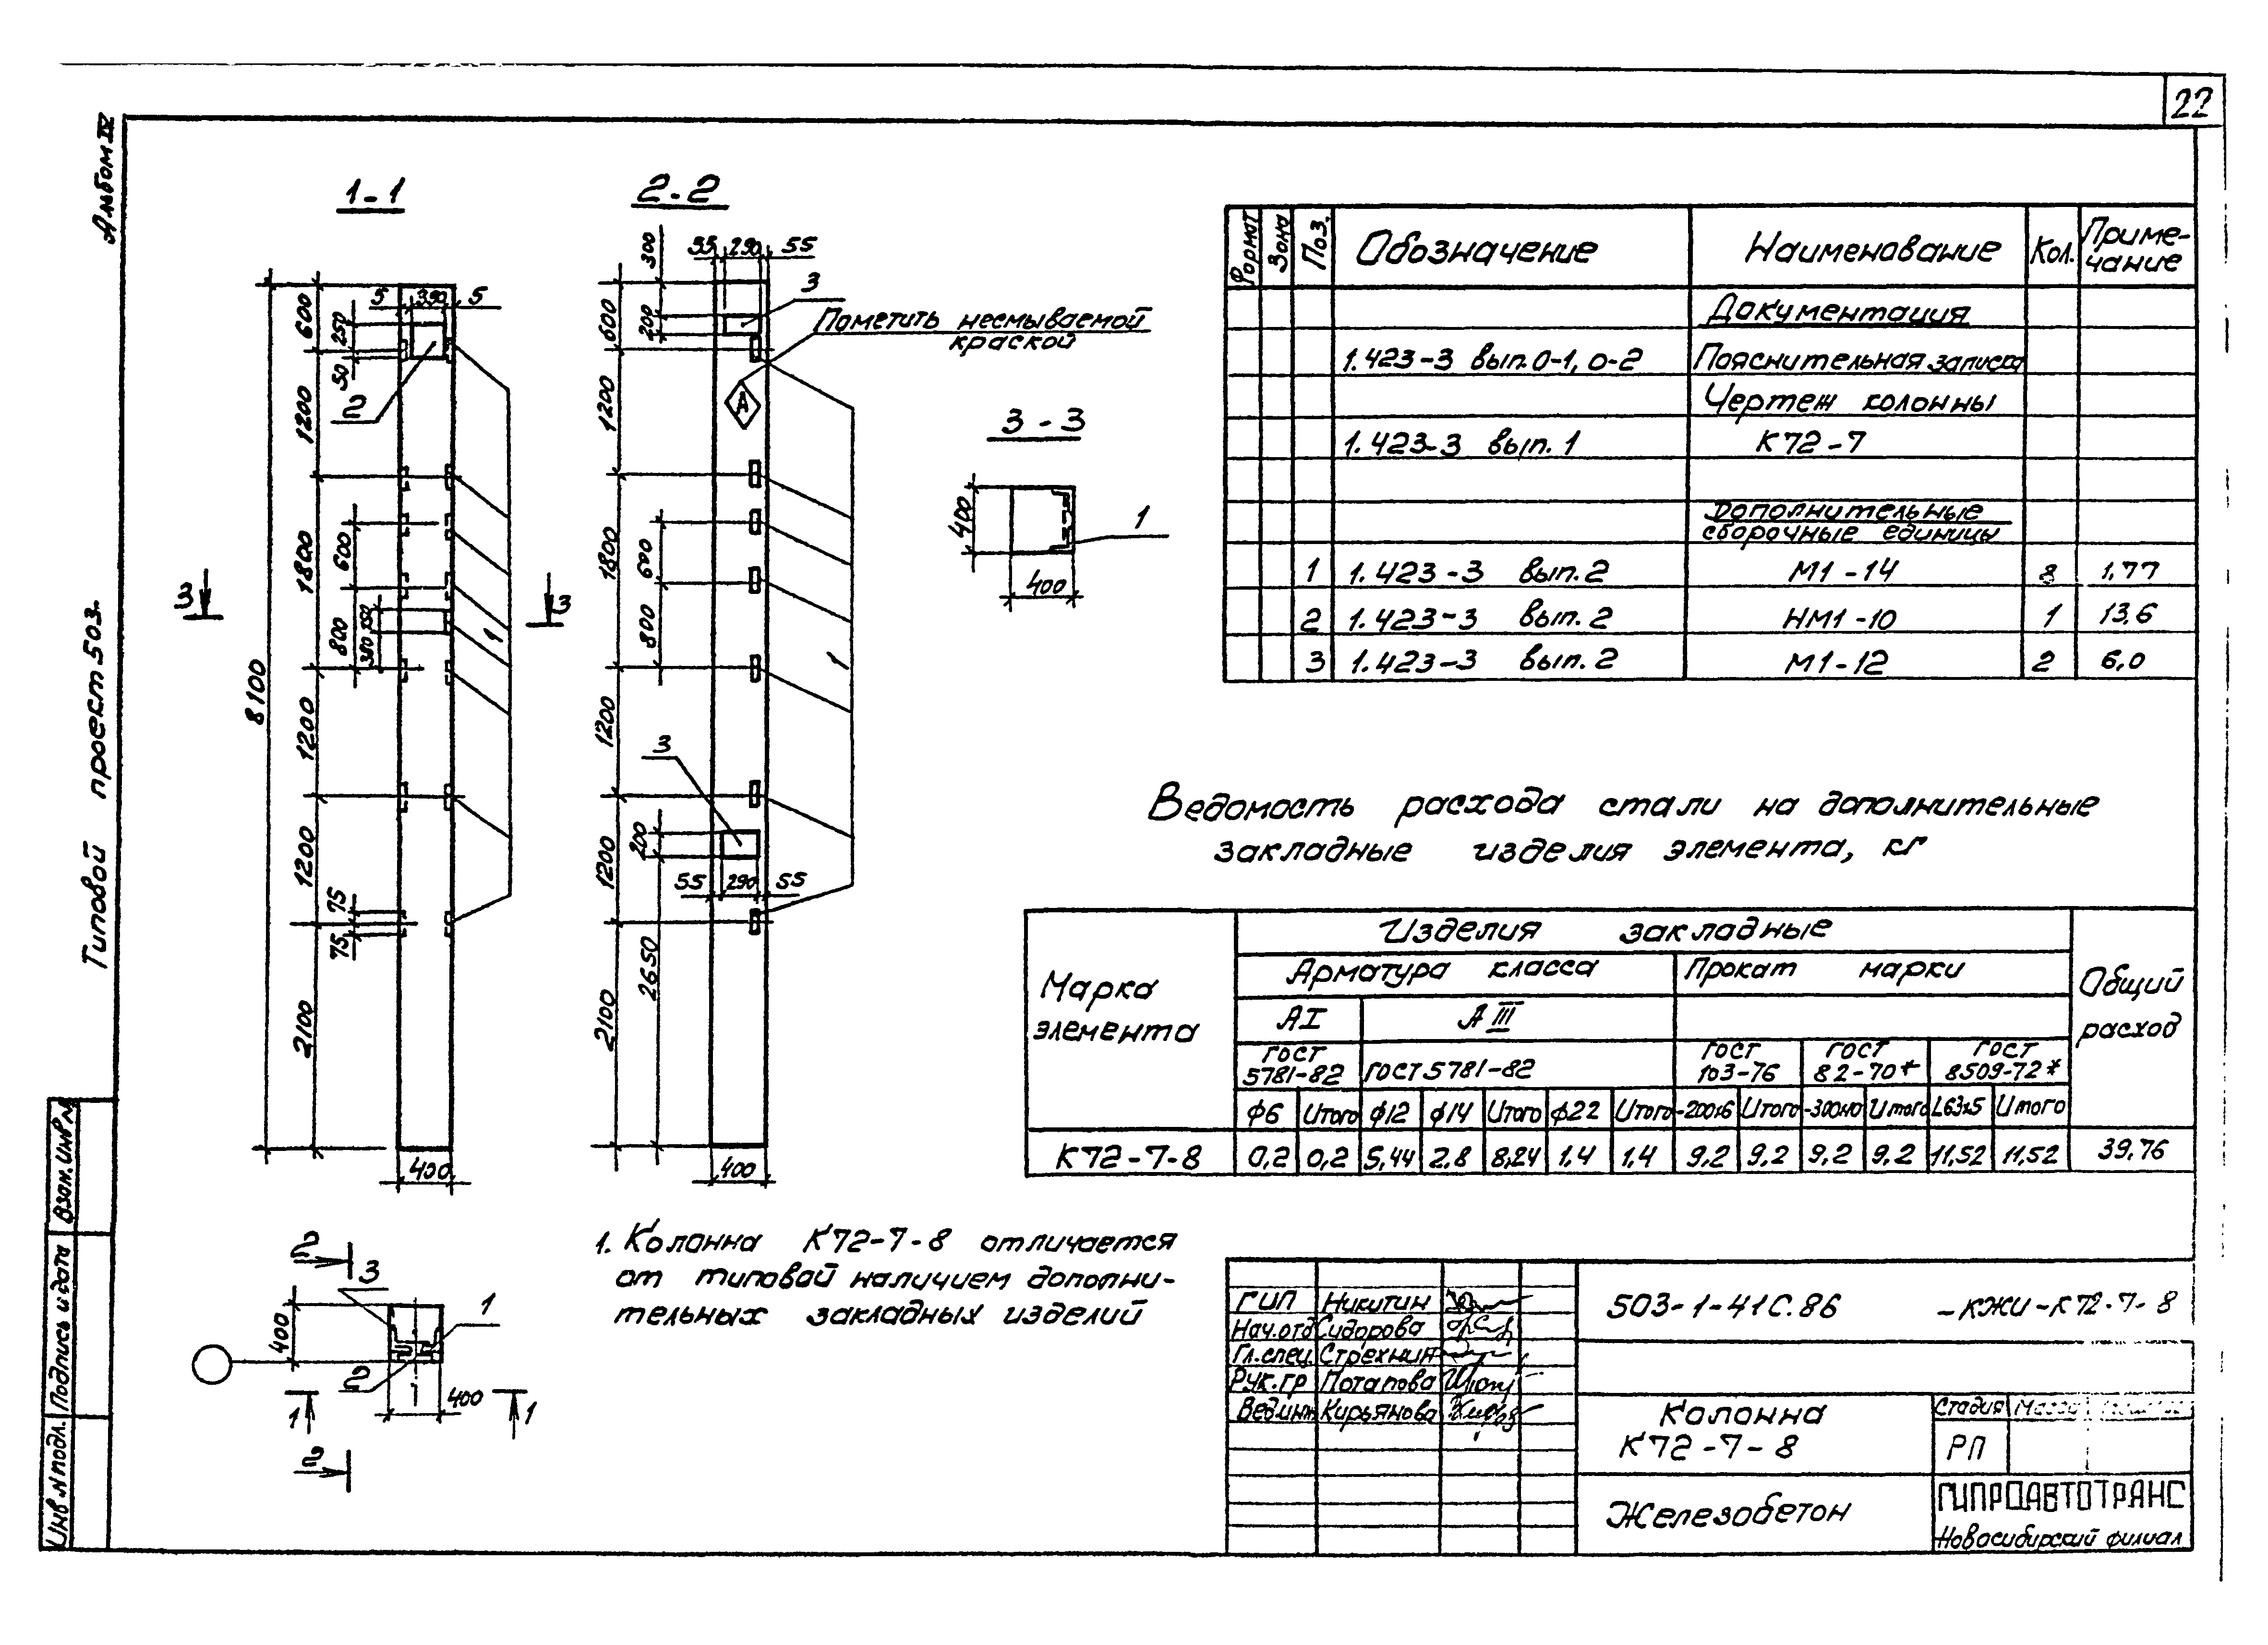 22
Альбом IV
Типовой проект 503-
1-1
2-2
3-3
8100
600
1200
1800
1200
1200
2100
250
50
5 390 5
2
600
800
75
75
3
3
1
400
300
55 290 55
3
200
600
1200
1800
1200
1200
2100
600
800
Пометить несмываемой
краской
А
1
3
200
55 290 55
2650
400
400
400
1
Формат
Зона
Поз.
Обозначение
Наименование
Кол.
Приме-
чание
Документация
1.423-3 вып.0-1, 0-2 Пояснительная записка
Чертеж колонны
1.423-3 вып.1 К72-7
Дополнительные
сборочные единицы
1 1.423-3 вып.2 М1-14 8 1,77
2 1.423-3 вып.2 НМ1-10 1 13,6
3 1.423-3 вып.2 М1-12 2 6,0
Ведомость расхода стали на дополнительные
закладные изделия элемента, кг
Марка
элемента
Изделия закладные
Общий
расход
Арматура класса
Прокат марки
АI
АIII
ГОСТ
5781-82
ГОСТ 5781-82
ГОСТ
103-76
ГОСТ
82-70*
ГОСТ
8509-72*
ф6 Итого ф12 ф14 Итого ф22 Итого -200х6 Итого -300х10 Итого L63х5 Итого
К72-7-8 0,2 0,2 5,44 2,8 8,24 1,4 1,4 9,2 9,2 9,2 9,2 11,52 11,52 39,76
1. Колонна К72-7-8 отличается
от типовой наличием дополни-
тельных закладных изделий
2
3
1
400
2
400
1
1
2
Взам.инв.№
Подпись и дата
Инв.№подл.
ГИП Никитин
Нач.отд Сидорова
Гл.спец. Стрехнин
Рук.гр Потапова
Вед.инж Кирьянова
503-1-41С.86 -КЖИ-К72-7-8
Колонна
К72-7-8
Стадия Масса
РП
Железобетон
ГИПРОАВТОТРАНС
Новосибирский филиал